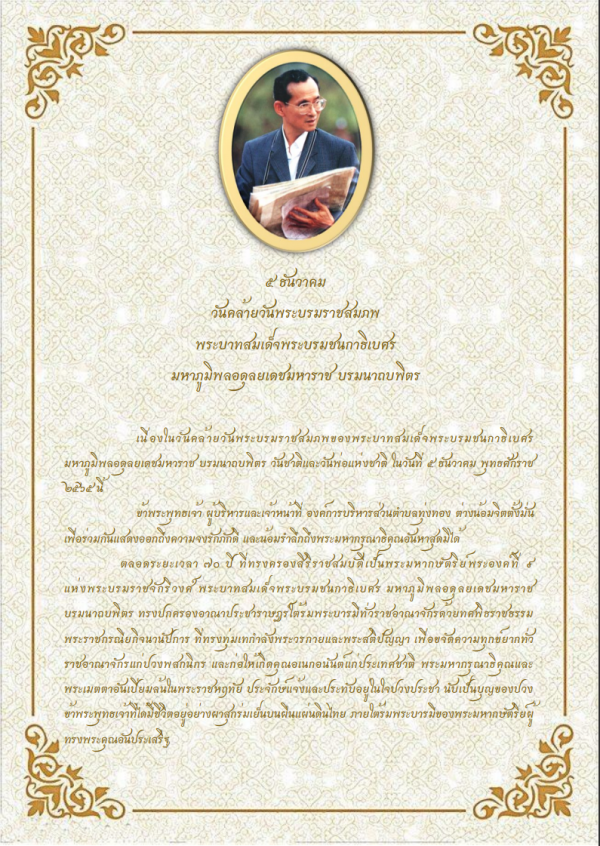 ๕ ธันวาคม
วันคล้ายวันพระบรมราชสมภพ
พระบาทสมเด็จพระบรมชนกาธิเบศร
มหาภูมิพลอดุลยเดชมหาราช บรมนาถบพิตร
เนื่องในวันคล้ายวันพระบรมราชสมภพของพระบาทสมเด็จพระบรมชนกาธิเบศร
มหาภูมิพลอดุลยเดชมหาราช บรมนาถบพิตร วันชาติและวันพ่อแห่งชาติ ในวันที่ ๕ ธันวาคม พุทธศักราช
๒๕๖๕ นี้
ข้าพระพุทธเจ้า ผู้บริหารและเจ้าหน้าที่ องค์การบริหารส่วนตำบลทุ่งทอง ต่างน้อมจิตตั้งมั่น
เพื่อร่วมกันแสดงออกถึงความจงรักภักดี และน้อมรำลึกถึงพระมหากรุณาธิคุณอันหาสุดมิได้
ตลอดระยะเวลา ๗๐ ปี ที่ทรงครองสิริราชสมบัติเป็นพระมหากษัตริย์พระองค์ที่ ๙
แห่งพระบรมราชจักรีวงศ์ พระบาทสมเด็จพระบรมชนกาธิเบศร มหาภูมิพลอดุลยเดชมหาราช
บรมนาถบพิตร ทรงปกครองอาณาประชาราษฎร์ใต้ร่มพระบารมีทั่วราชอาณาจักรด้วยทศพิธราชธรรม
พระราชกรณียกิจนานัปการ ที่ทรงทุ่มเทกำลังพระวรกายและพระสติปัญญา เพื่อขจัดความทุกข์ยากทั่ว
ราชอาณาจักรแก่ปวงพสกนิกร และก่อให้เกิดคุณอเนกอนันต์แก่ประเทศชาติ พระมหากรุณาธิคุณและ
พระเมตตาอันเปี่ยมล้นในพระราชหฤทัย ประจักษ์แจ้งและประทับอยู่ในใจปวงประชา นับเป็นบุญของปวง
ข้าพระพุทธเจ้าที่ได้มีชีวิตอยู่อย่างผาสุกร่มเย็นบนผืนแผ่นดินไทย ภายใต้ร่มพระบารมีของพระมหากษัตริย์ผู้
ทรงพระคุณอันประเสริฐ